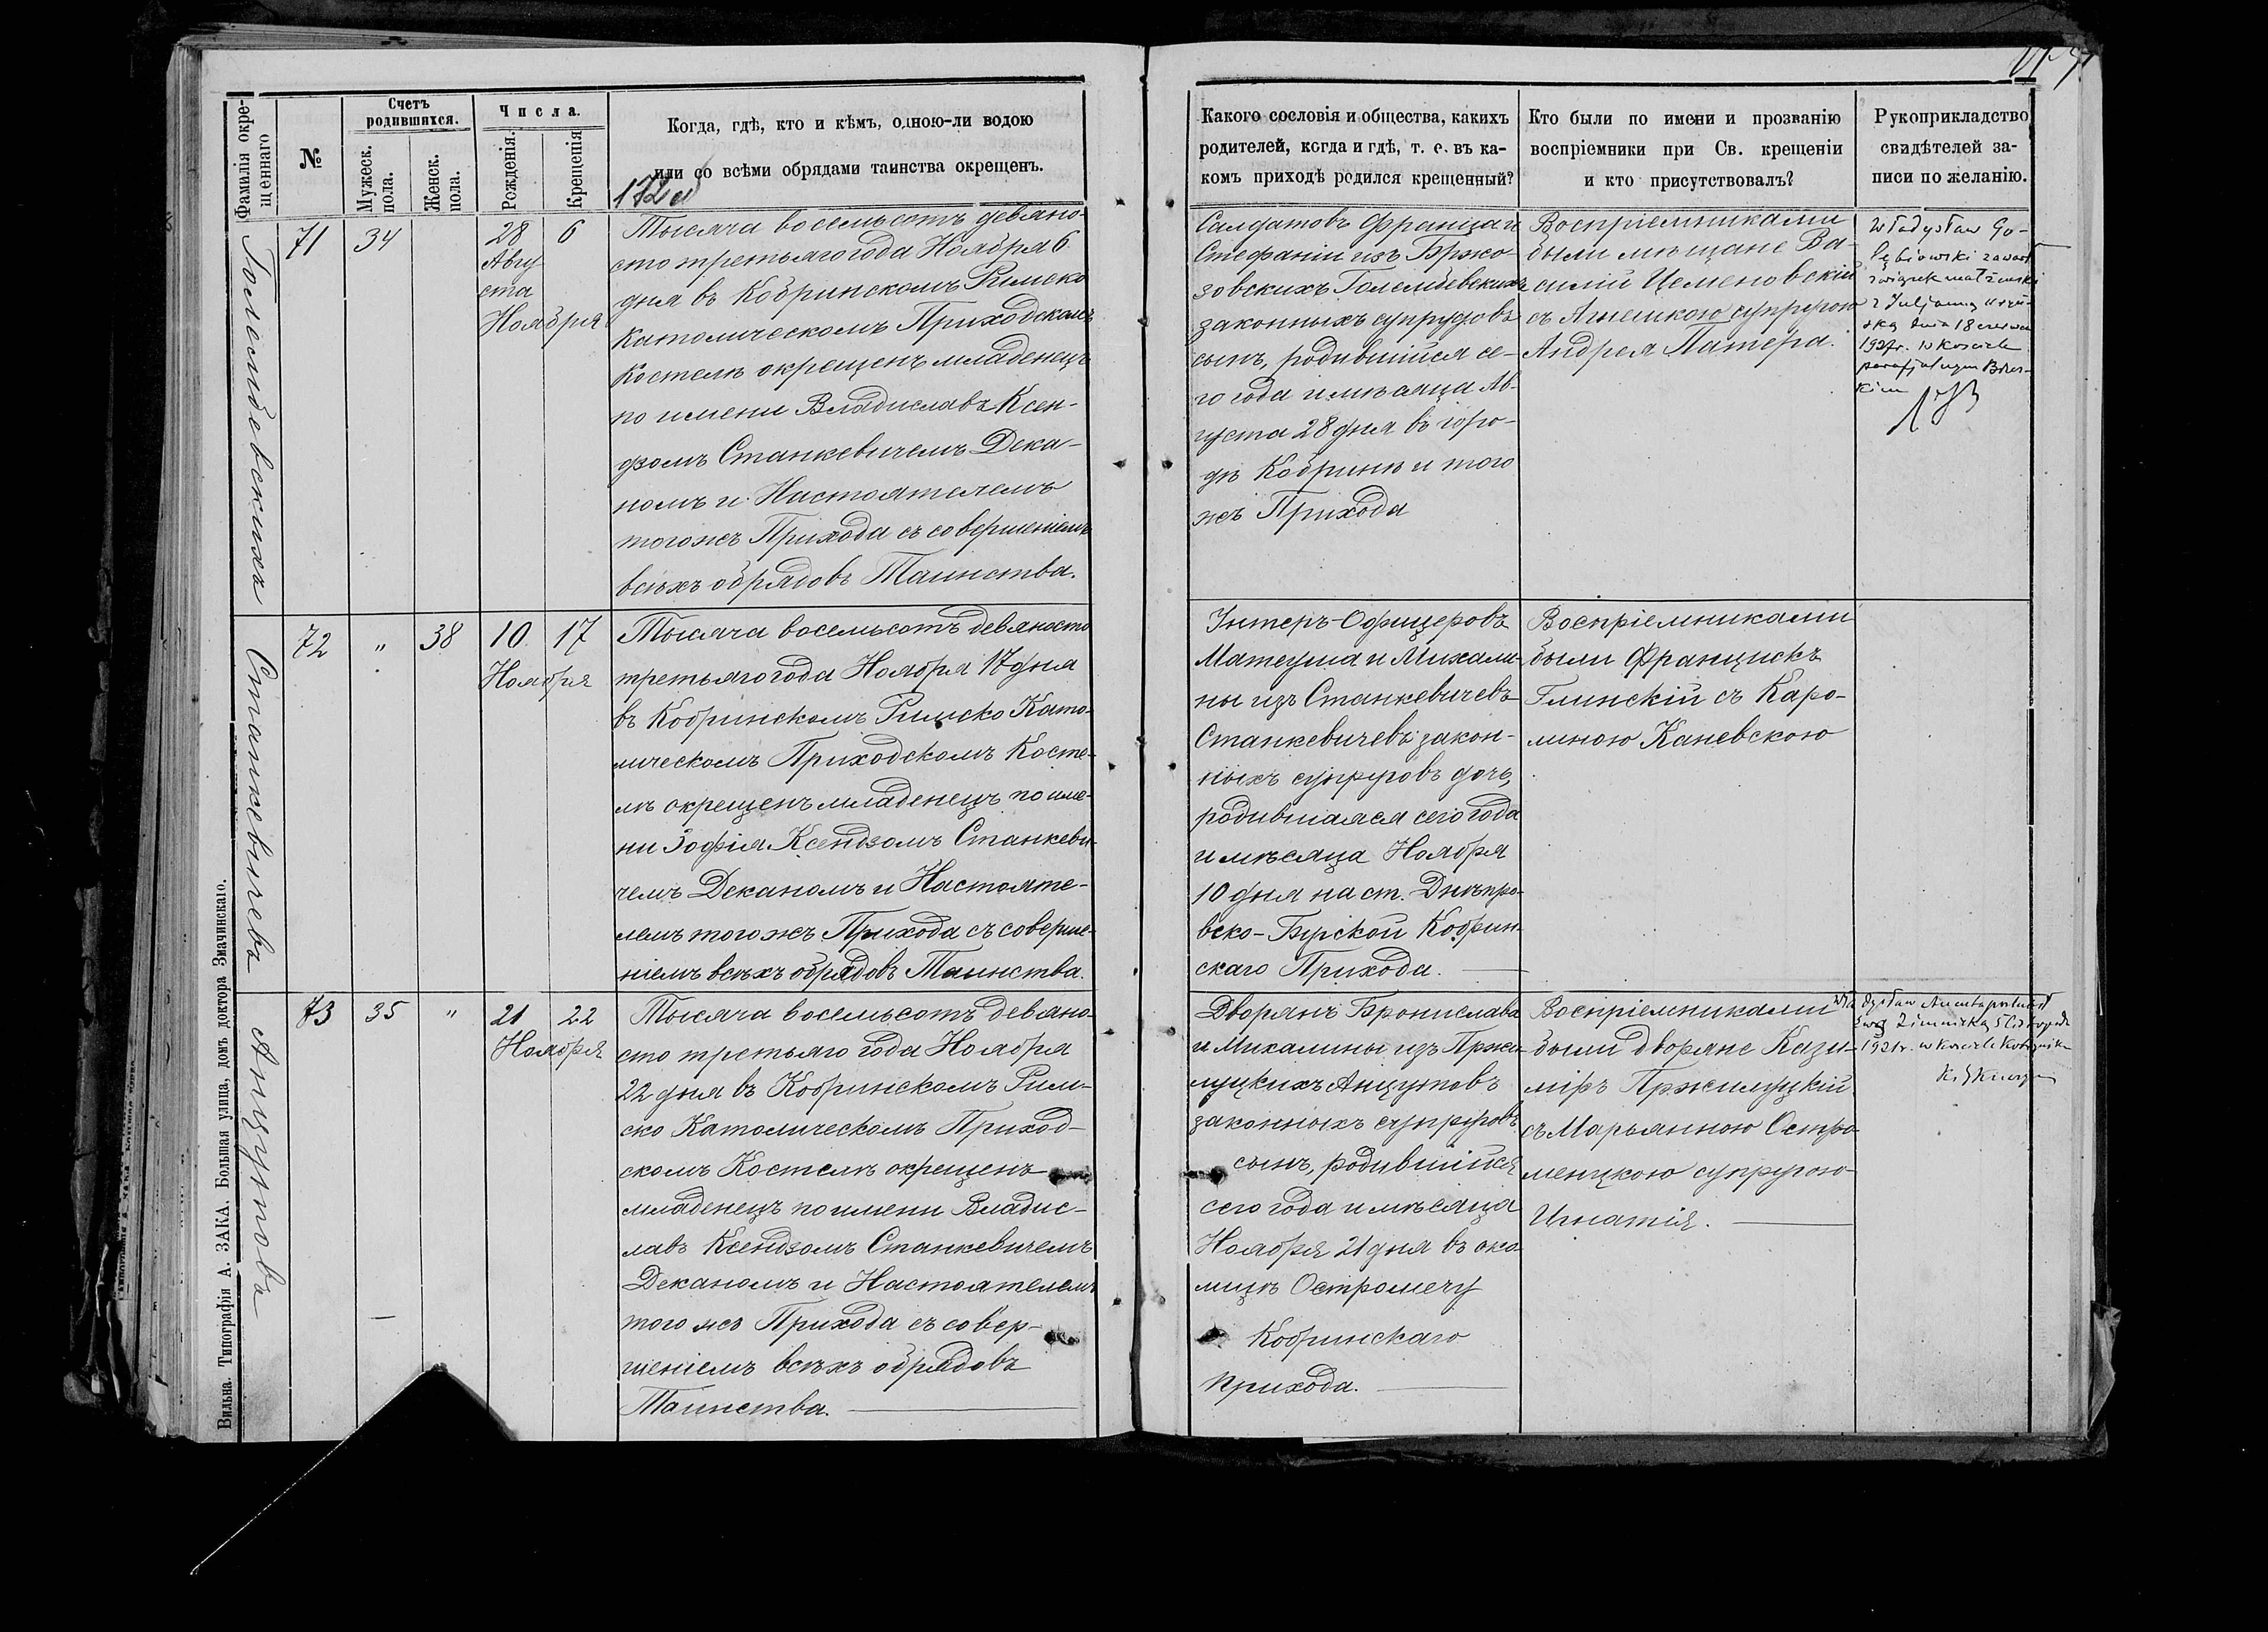 Фамилія окре-
щеннаго
№
Счетъ
родившихся.
Мужеск.
пола.
Женск.
пола.
Числа.
Рожденія.
Крещенія
Когда, гдѣ, кто и кѣмъ, одною-ли водою
или со всѣми обрядами таинства окрещенъ.
Голембевскихъ
71
34
28
Авгу
ста
6
Ноября
Тысяча восемьсотъ девяно-
сто третьяго года Ноября 6
дня въ Кобринскомъ Римско
Католическомъ Приходскомъ
Костелѣ окрещенъ младенецъ
по имени Владиславъ Ксен-
дзомъ Станкевичемъ Дека-
номъ и Настоятелемъ
тогожъ Прихода съ совершеніемъ
всѣхъ обрядовъ Таинства.
Станкевичевъ
72
"
38
10
17
Ноября
Тысяча восемьсотъ девяносто
третьяго года Ноября 17 дня
въ Кобринскомъ Римско Като-
лическомъ Приходскомъ Косте-
лѣ окрещенъ младенецъ по име-
ни Зофія Ксендзомъ Станкеви-
чемъ Деканомъ и Настояте-
лемъ тогожъ Прихода съ соверше-
ніемъ всѣхъ обрядовъ Таинства.
Анцутовъ
73
35
"
21
22
Ноября
Тысяча восемьсотъ девяно-
сто третьяго года Ноября
22 дня въ Кобринскомъ Рим-
ско Католическомъ Приход-
скомъ Костелѣ окрещенъ
младенецъ по имени Владис-
лавъ Ксендзомъ Станкевичемъ
Деканомъ и Настоятелемъ
того жъ Прихода съ совер-
шеніемъ всѣхъ обрядовъ
Таинства.
Вильна. Типографія А. ЗАКА. Большая улица, домъ доктора Змачинскаго.
Какого сословія и общества, какихъ
родителей, когда и гдѣ, т. е. въ ка-
комъ приходѣ родился крещенный?
Кто были по имени и прозванію
воспріемники при Св. крещеніи
и кто присутствовалъ?
Рукоприкладство
свидѣтелей за-
писи по желанію.
Салдатовъ Франца и
Стефаніи изъ Бржо-
зовскихъ Голембевскихъ
законныхъ супруговъ
сынъ, родившійся се-
го года и мѣсяца Ав-
густа 28 дня въ горо-
дѣ Кобринѣ и того
жъ Прихода
Воспріемниками
были мѣщане Ва-
силій Цеменовскій
съ Агнешкою супругою
Андрея Патера.
Władysław Go-
łębiowski zawarł
związek małżeński
z Juljanną
dnia 18 czerwca
1927r. w kościele
parafjalnym Brzes-
kim
Унтеръ-Офицеровъ
Матеуша и Михали-
ны изъ Станкевичевъ
Станкевичевъ закон-
ныхъ супруговъ дочь,
родившаяся сего года
и мѣсяца Ноября
10 дня на ст. Днѣпро-
вско-Бугской Кобрин-
скаго Прихода.
Воспріемниками
были Францискъ
Глинскій съ Каро-
линою Каневскою
Дворянъ Бронислава
и Михалины изъ Пржи-
луцкихъ Анцутовъ
законныхъ супруговъ
сынъ, родившійся
сего года и мѣсяца
Ноября 21 дня въ око-
лицѣ Остромечу
Кобринскаго
прихода.
Воспріемниками
были дворяне Кази-
міръ Пржилуцкій
съ Марьянною Остро-
менцкою супругою
Игнатія.
Władysław Ancuta poślubił
Ewę Zimnicką 5 listopada
1921r. w kościele Kobryńskim